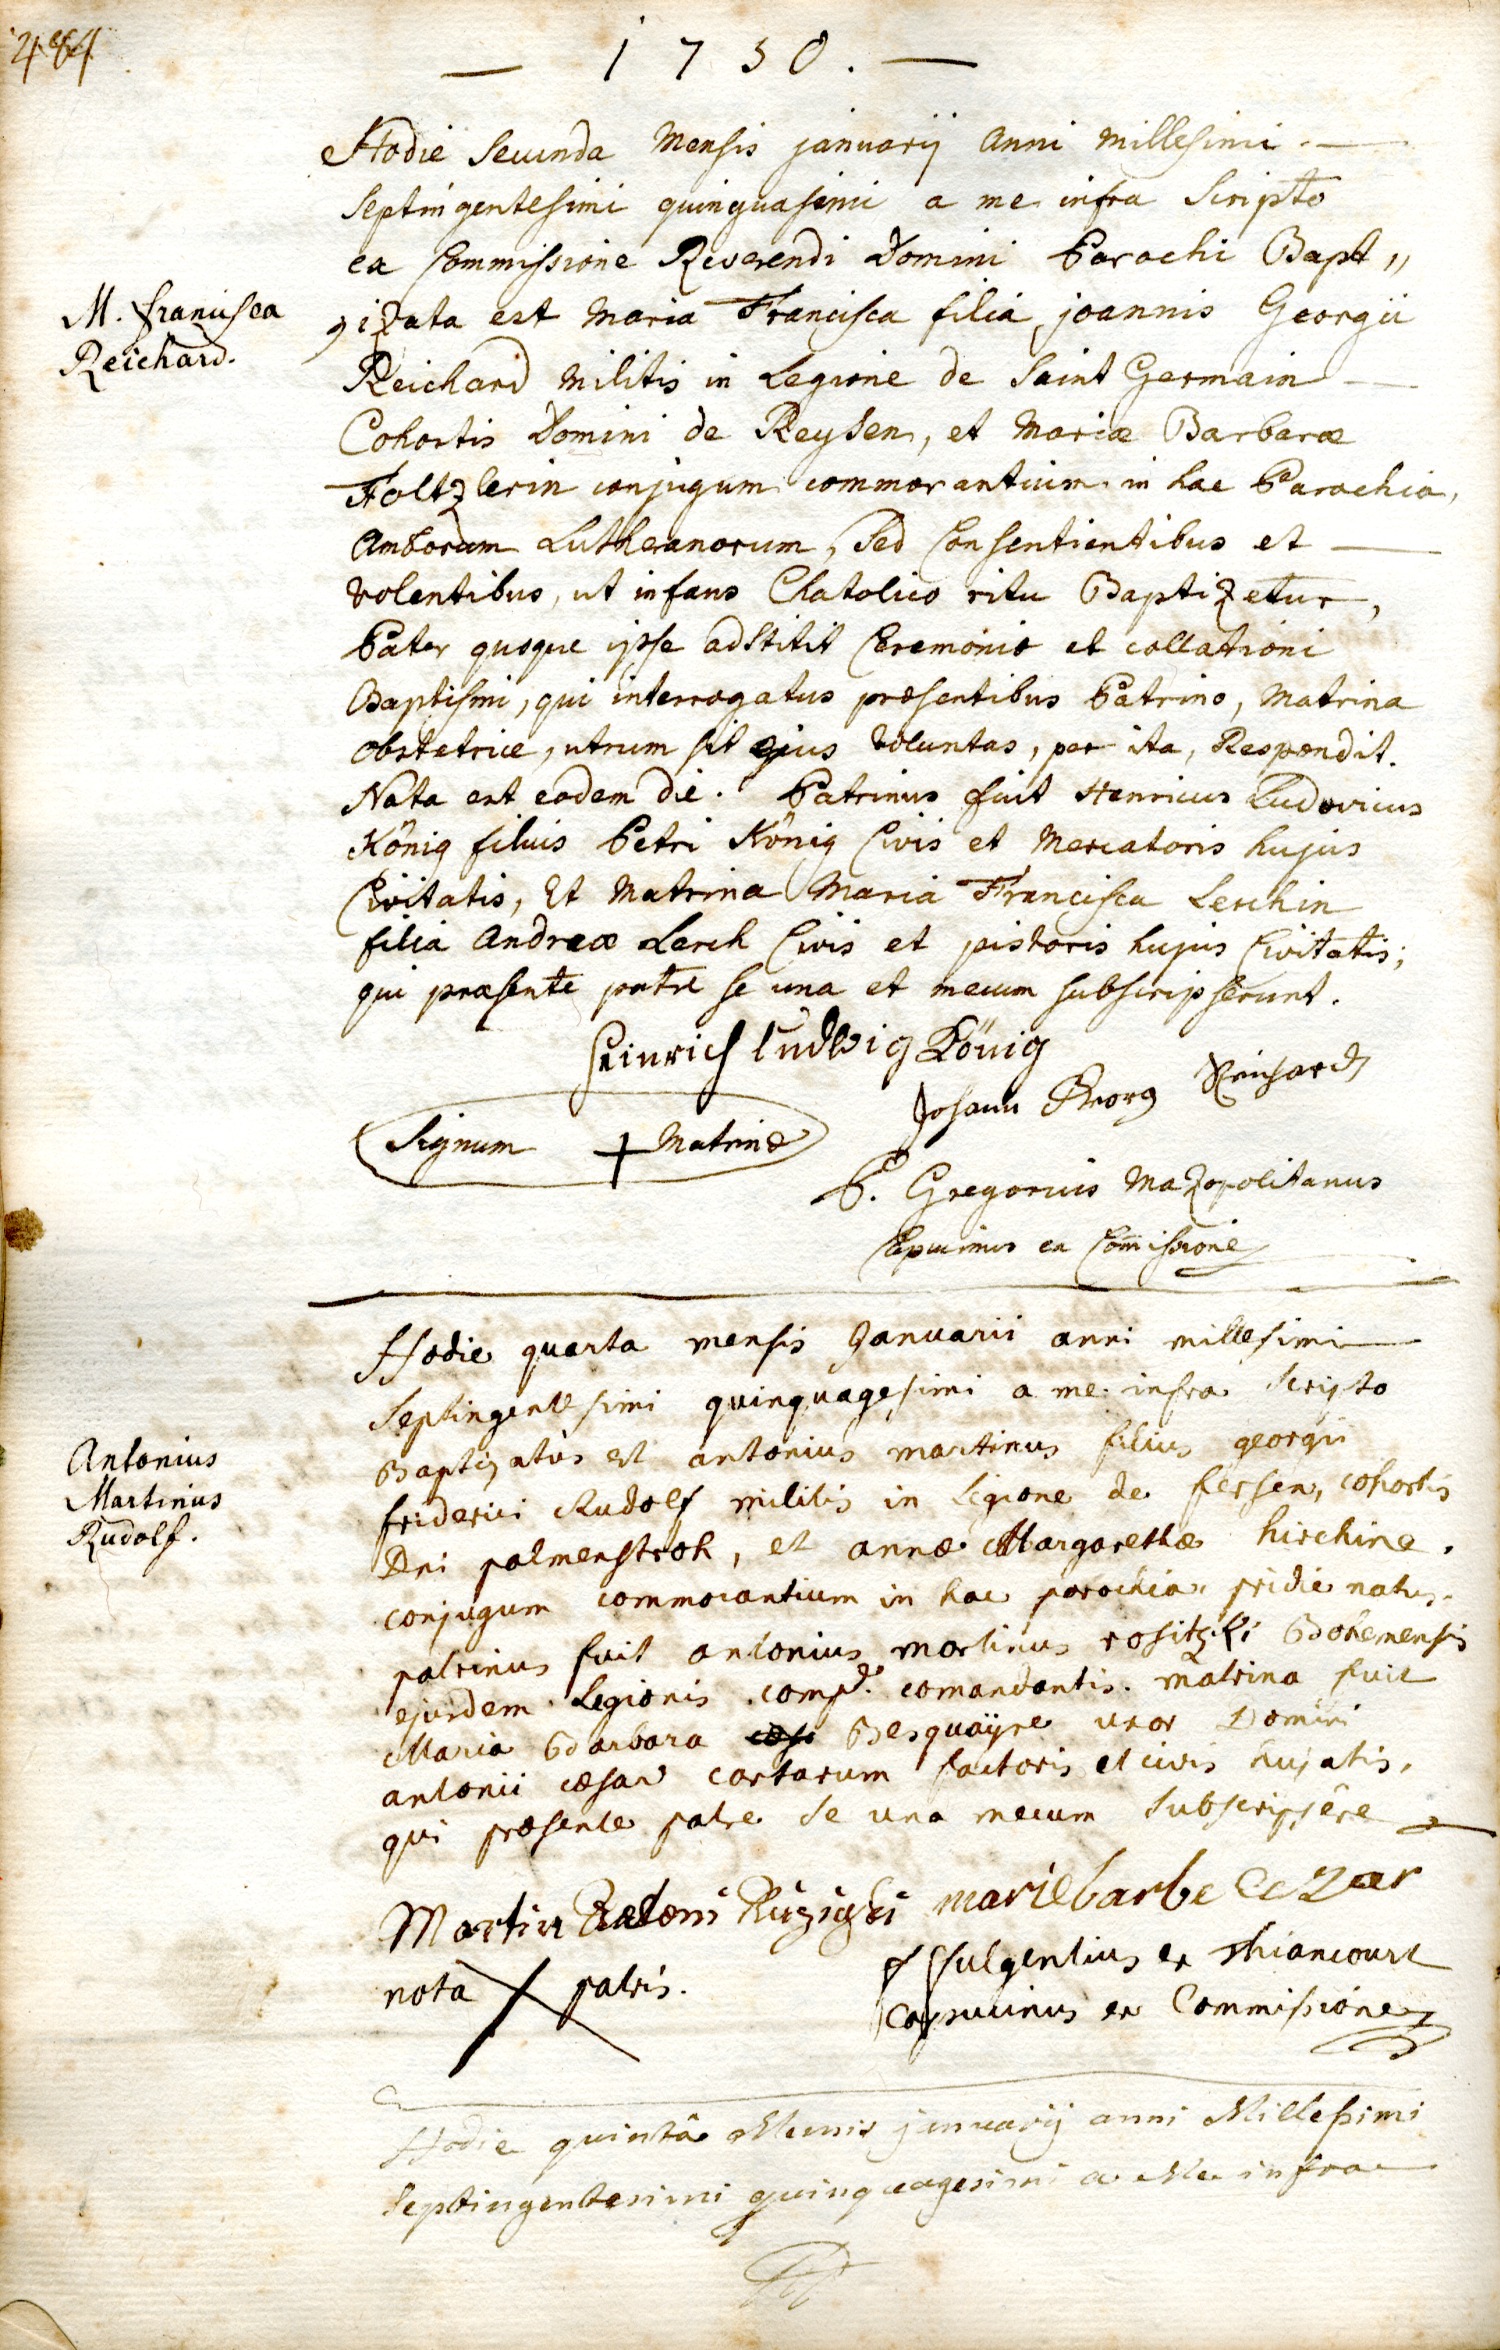 484
— 1750. —
Hodie Secunda Mensis januarij Anni Millesimi. —
Septingentesimi quinguasimi a me infra Scripto
ex Commissione Reverendi Domini Parochi Bapt„
M. francisca
Reichard.
izata est Maria Francisca filia joannis Georgii
Reichard Militis in Legione de Saint Germain —
Cohortis Domini de Reysen, et Mariæ Barbaræ
Holtzlerin conjugum commorantium in hac Parochia,
Amborum Lutheranorum, Sed Consentientibus et —
volentibus, ut infans Chatolico ritu Baptizetur,
Pater quoque ipse adstitit Ceremonio et collationi
Baptismi, qui interrogatus præsentibus Patrino, Matrina
obstetrice, utrum sit ejus voluntas, per ita, Respondit.
Nata est eodem die. Patrinus fuit Henricus Ludovicus
König filius Petri König Civis et Mercatoris hujus
Civitatis, Et Matrina Maria Francisca Lerchin
filia Andreæ Lerch Civis et pistoris hujus Civitatis;
qui præsente patre se una et mecum subscripserunt.
Heinrich Ludwig König
Johann Georg Reichard
Signum + Matrinæ
P. Gregorius Mazopolitanus
Capucinus ex Commissione
Hodie quarta mensis Januarii anni millesimi
Septingentesimi quinquagesimi a me infra Scripto
Antonius
Martinus
Rudolf.
Baptizatus est antonius martinus filius georgii
friderici Rudolf militis in Legione de fersen, cohortis
Dni palmenstroh, et annæ Margarethæ hirchine.
conjugum commorantium in hac parochia. pridie natus.
patrinus fuit antonius martinus rositzki Bohemensis
ejusdem Legionis comandantis. matrina fuit
Maria Barbara Besquayre uxor Domini
antonii cæsar cartarum factoris et civis hujatis.
qui præsente patre se una mecum Subscripsêre
Martin marie barbe Cezar
nota X patris.
f fulgentius ex thiancourt
Capucinus ex Commissione
Hodie quintâ Mensis januarij anni Millesimi
Septingentesimi quinquagesimi a Me infra